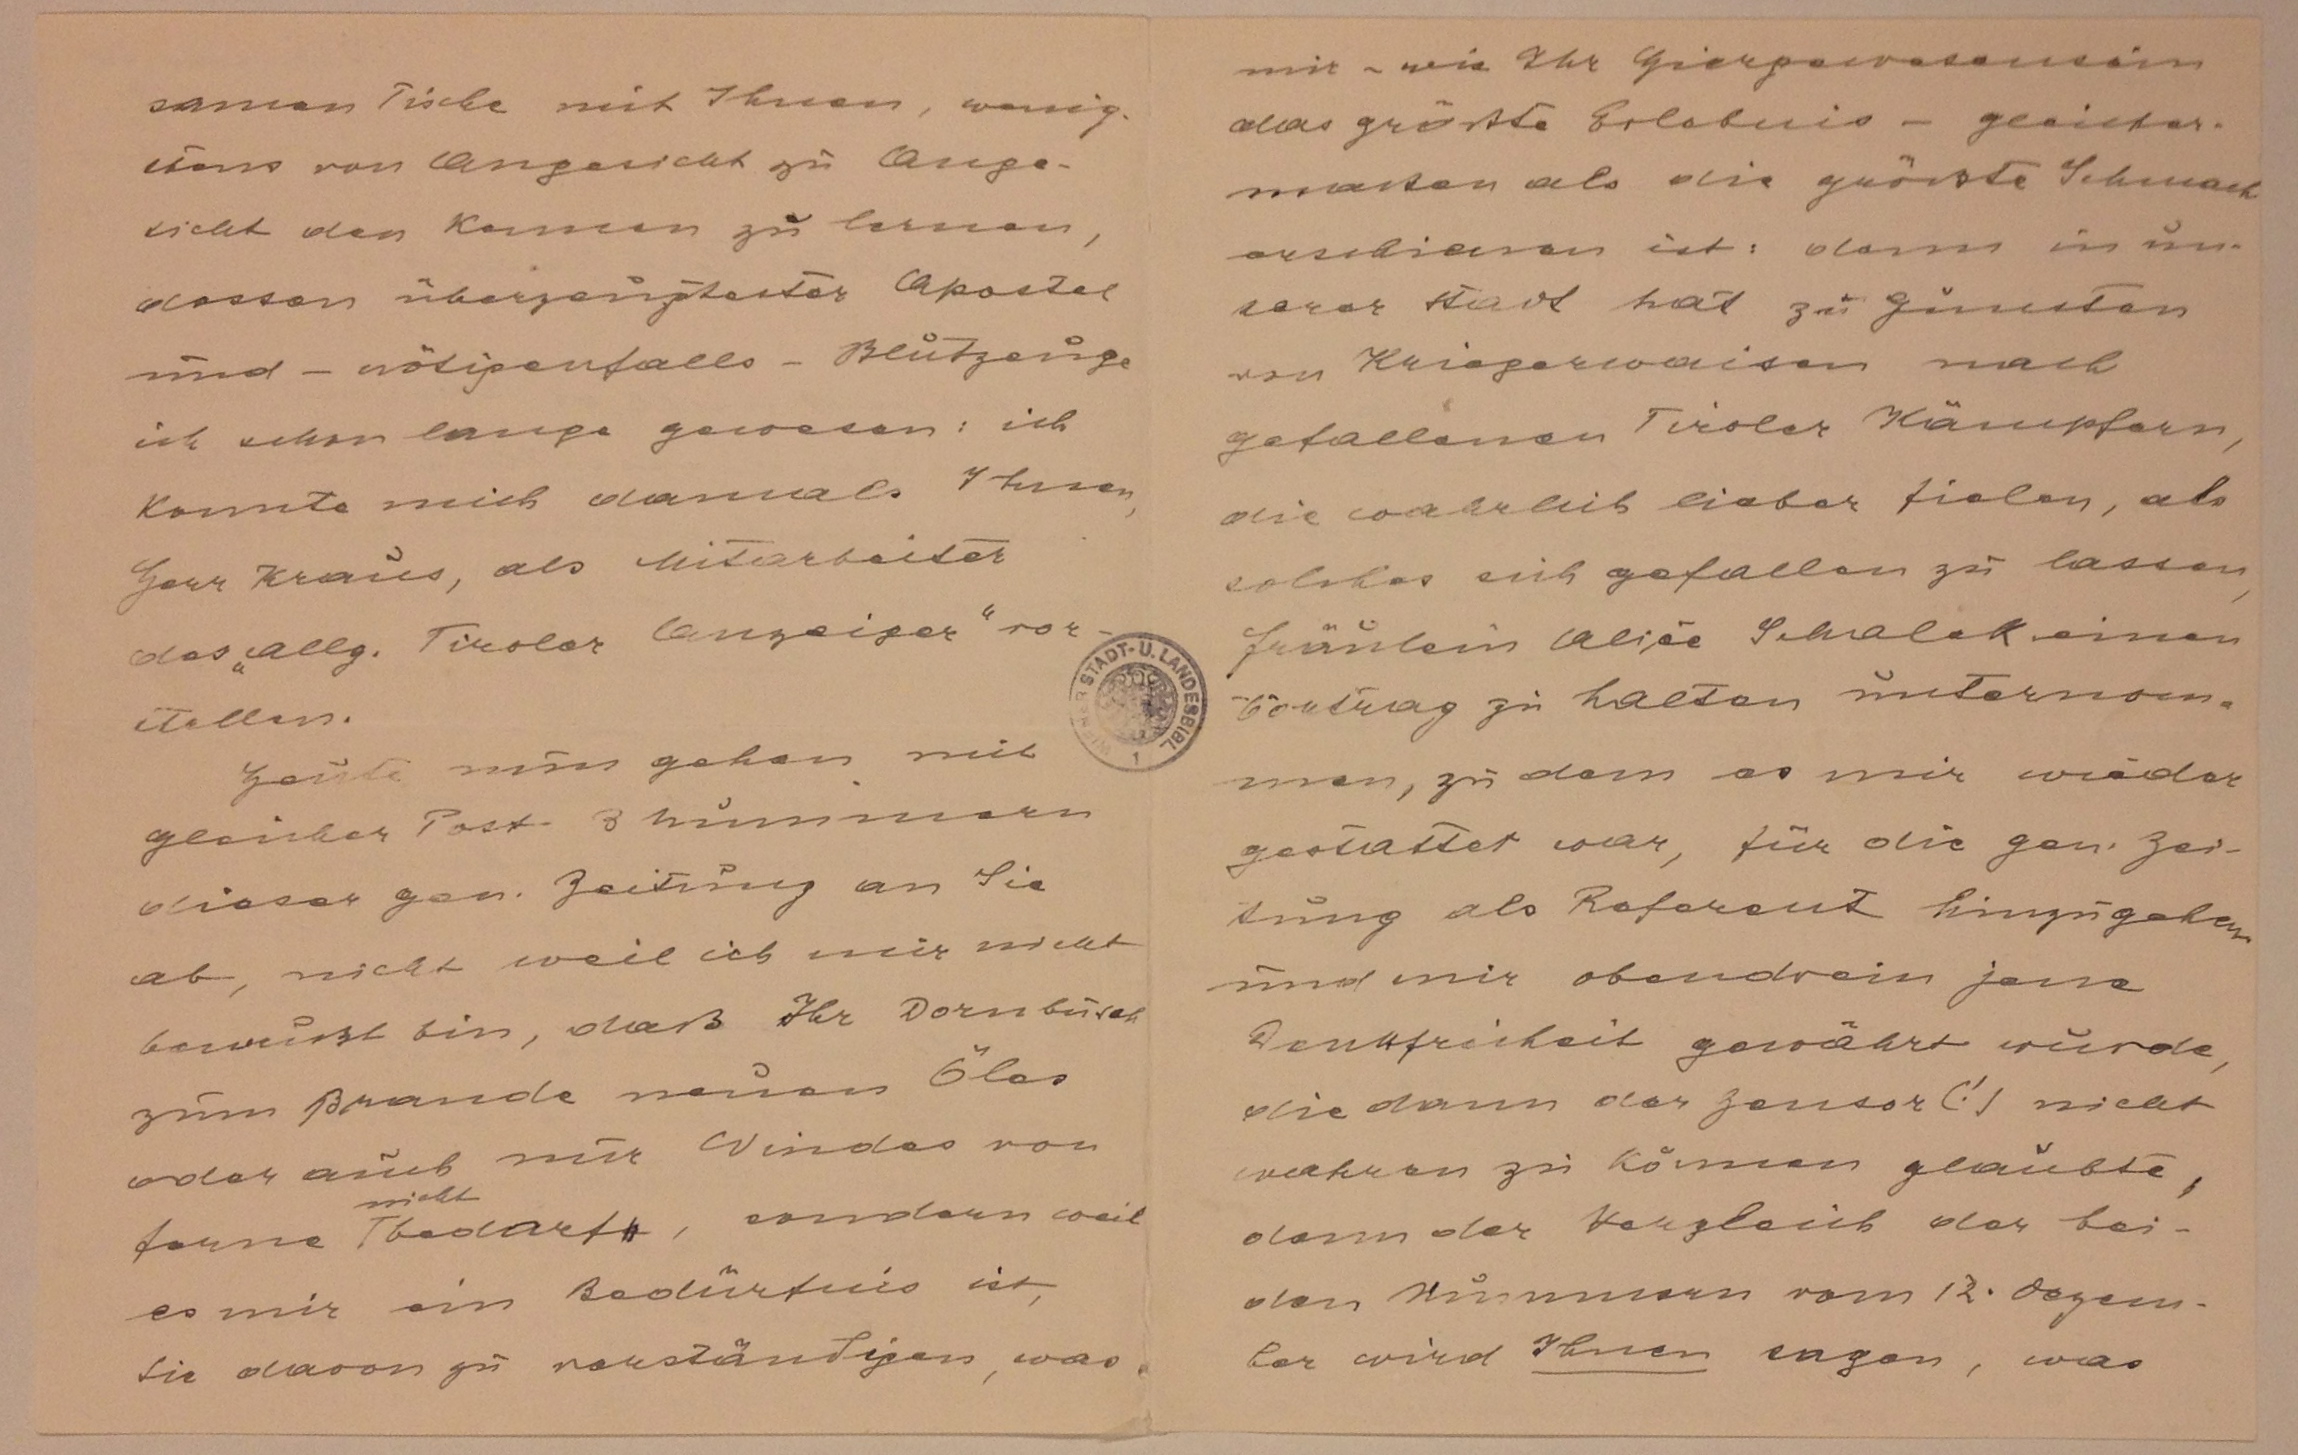 samen Tische mit Ihnen, wenig-
stens von Angesicht zu Ange-
sicht den kennen zu lernen,
dessen überzeugtester Apostel
und – nötigenfalls – Blutzeuge
ich schon lange gewesen: ich
konnte mich damals Ihnen,
Herr Kraus, als Mitarbeiter
des „Allg. Tiroler Anzeiger“ vor-
stellen.
Heute nun gehen mit
gleicher Post 3 Nummern
dieser gen. Zeitung an Sie
ab, nicht weil ich mir nicht
bewußt bin, daß Ihr Dornbusch
zum Brande neuen Öles
oder auch nur Windes von
ferne nicht bedarf, sondern weil
es mir ein Bedürfnis ist,
Sie davon zu verständigen, was
mir – wie Ihr Hiergewesensein
das größte Erlebnis – gleicher-
massen als die grösste Schmach
erschienen ist: denn in un-
serer Stadt hat zu Gunsten
von Kriegerwaisen nach
gefallenen Tiroler Kämpfern,
die wahrlich lieber fielen, als
solches sich gefallen zu lassen,
Fräulein Alice Schalek einen
Vortrag zu halten unternom-
men, zu dem es mir wieder
gestattet war, für die gen. Zei-
tung als Referent hinzugehen
und mir obendrein jene
Denkfreiheit gewährt wurde,
die dann der Zensor (!) nicht
wahren zu können glaubte,
denn der Vergleich der bei-
den Nummern vom 12. Dezem-
ber wird Ihnen sagen, was
WIENER STADT- U. LANDESBIBL.
1